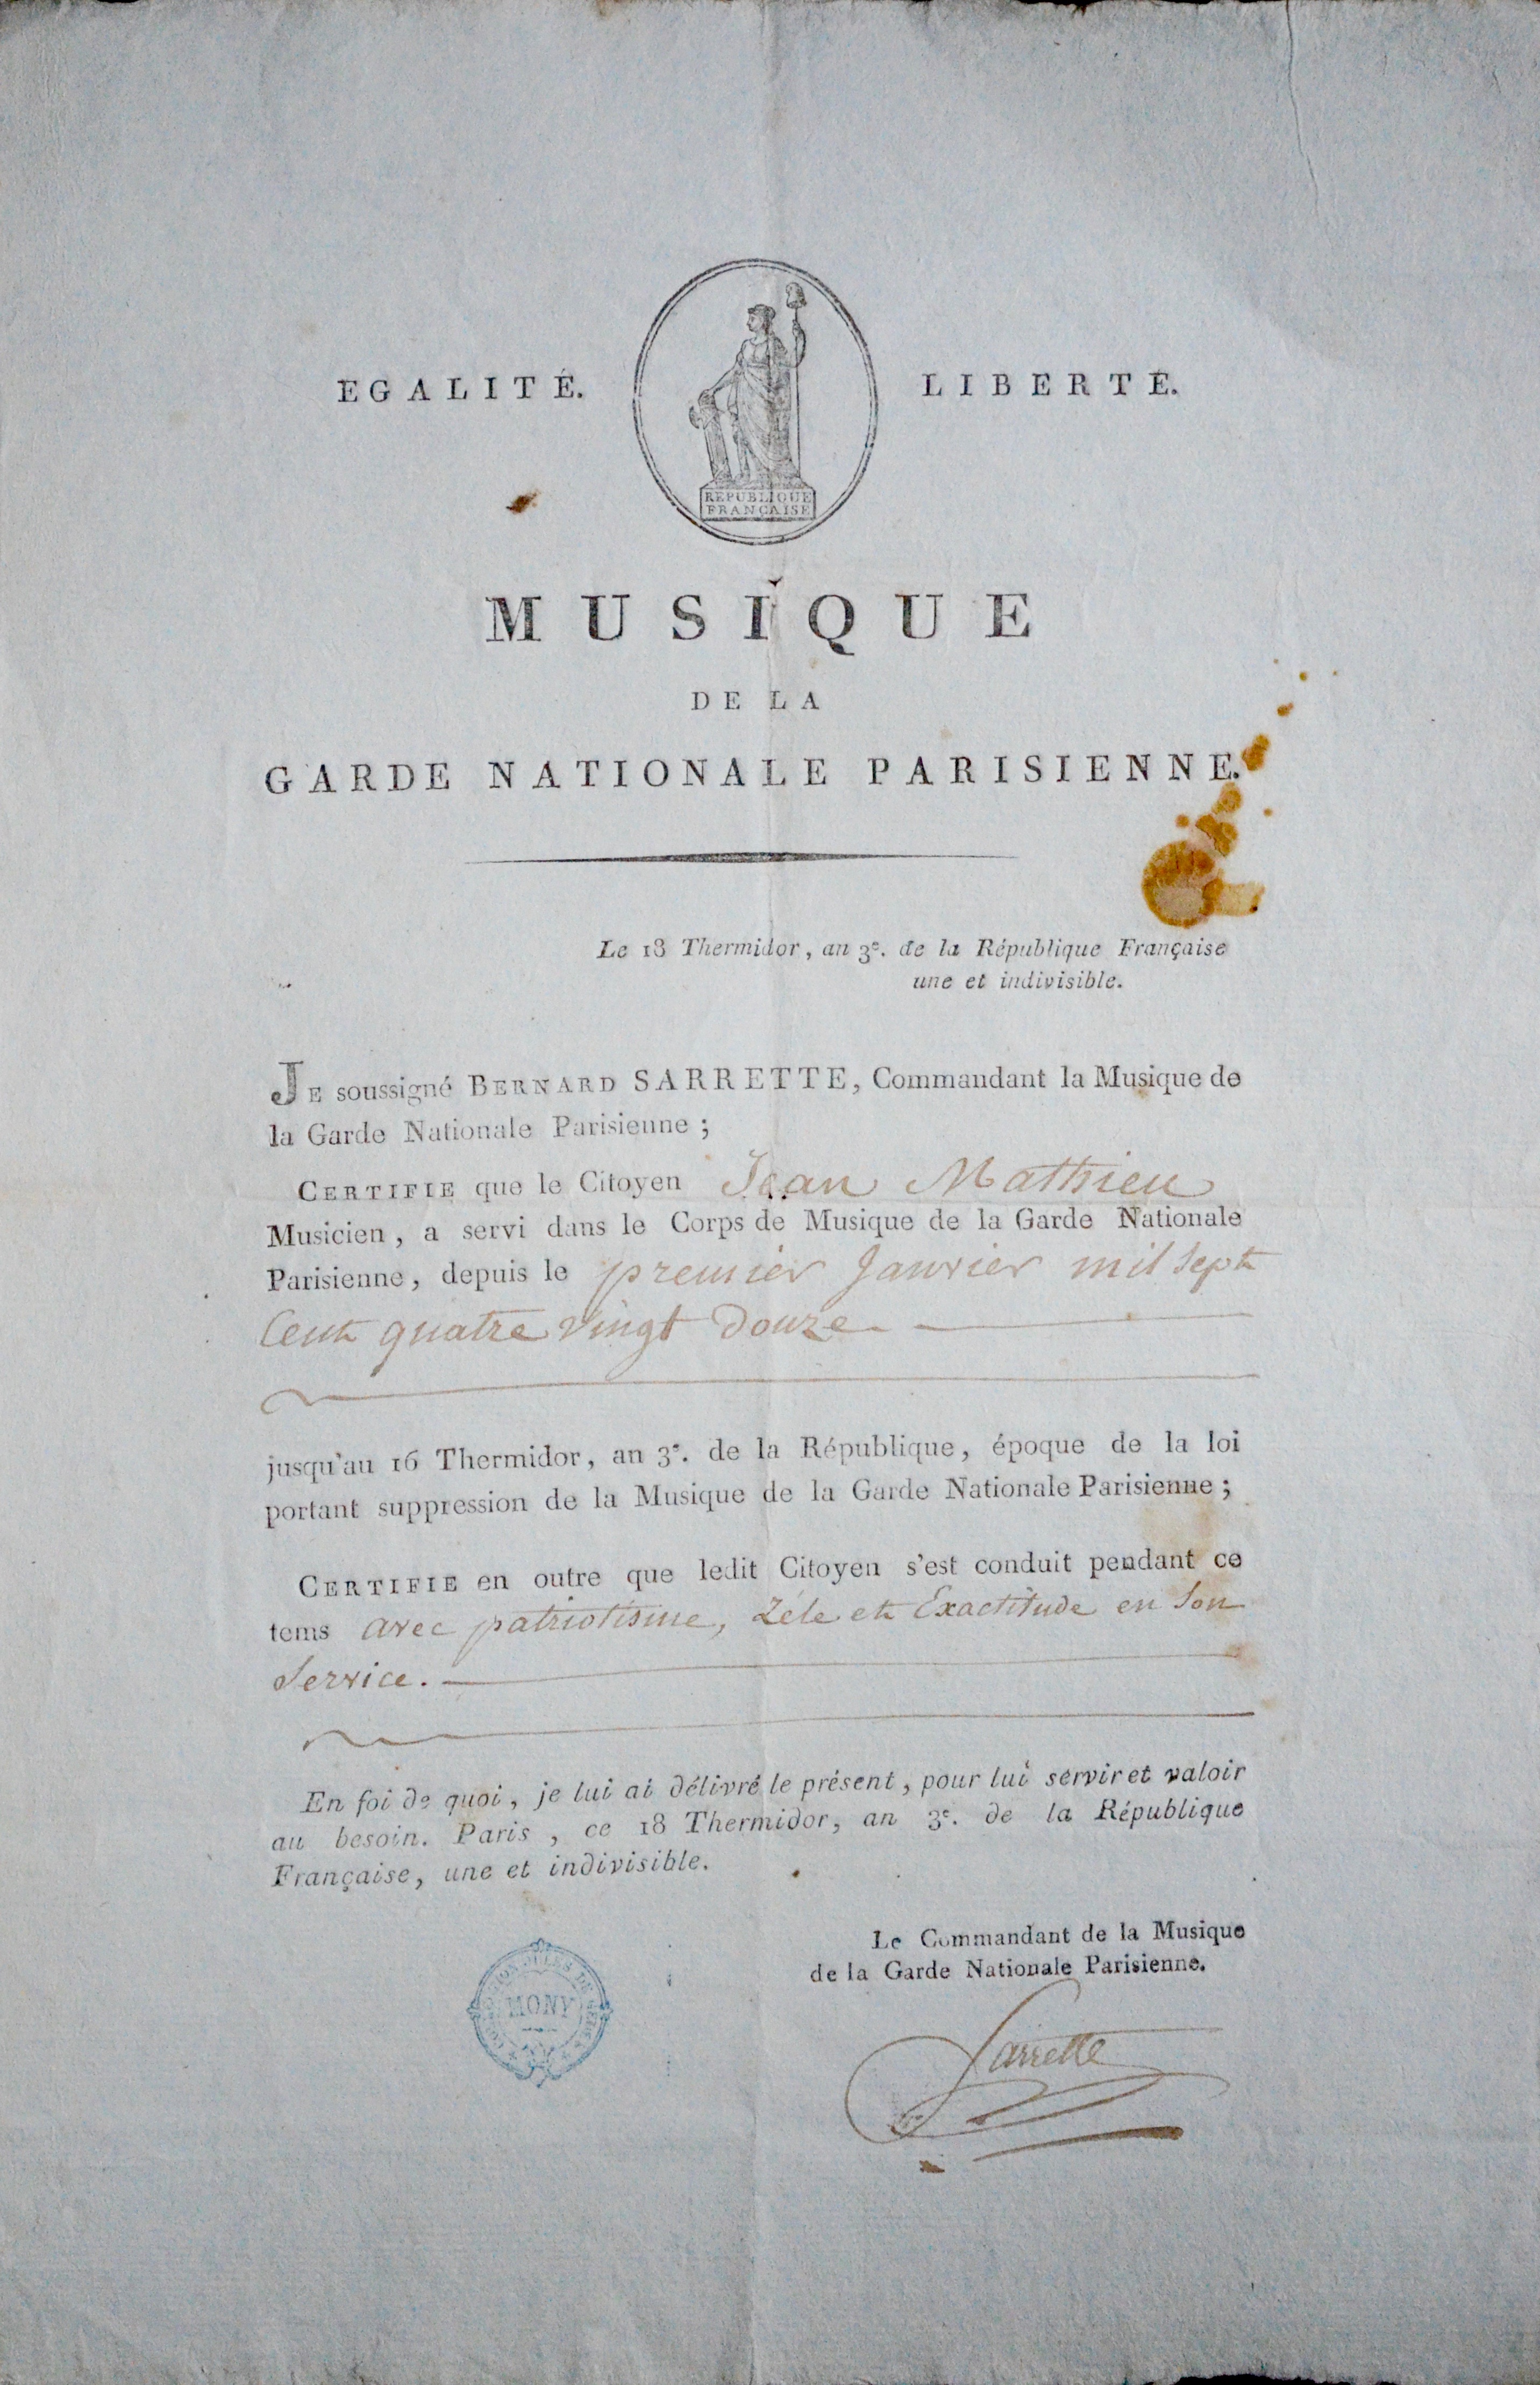 EGALITÉ. LIBERTÉ.
RÉPUBLIQUE
FRANÇAISE
MUSIQUE
DE LA
GARDE NATIONALE PARISIENNE.
Le 18 Thermidor, an 3e. de la République Française
une et indivisible.
JE soussigné BERNARD SARRETTE, Commandant la Musique de
la Garde Nationale Parisienne ;
CERTIFIE que le Citoyen Jean Mathieu
Musicien, a servi dans le Corps de Musique de la Garde Nationale
Parisienne, depuis le premier Janvier mil Sept
Cent quatre Vingt Douze
jusqu'au 16 Thermidor, an 3e. de la République, époque de la loi
portant suppression de la Musique de la Garde Nationale Parisienne ;
CERTIFIE en outre que ledit Citoyen s'est conduit pendant ce
tems avec patriotisme, Zéle et Exactitude en Son
Service.
En foi de quoi, je lui ai délivré le présent, pour lui servir et valoir
au besoin. Paris, ce 18 Thermidor, an 3e. de la République
Française, une et indivisible.
Le Commandant de la Musique
de la Garde Nationale Parisienne.
MONY
Sarrette